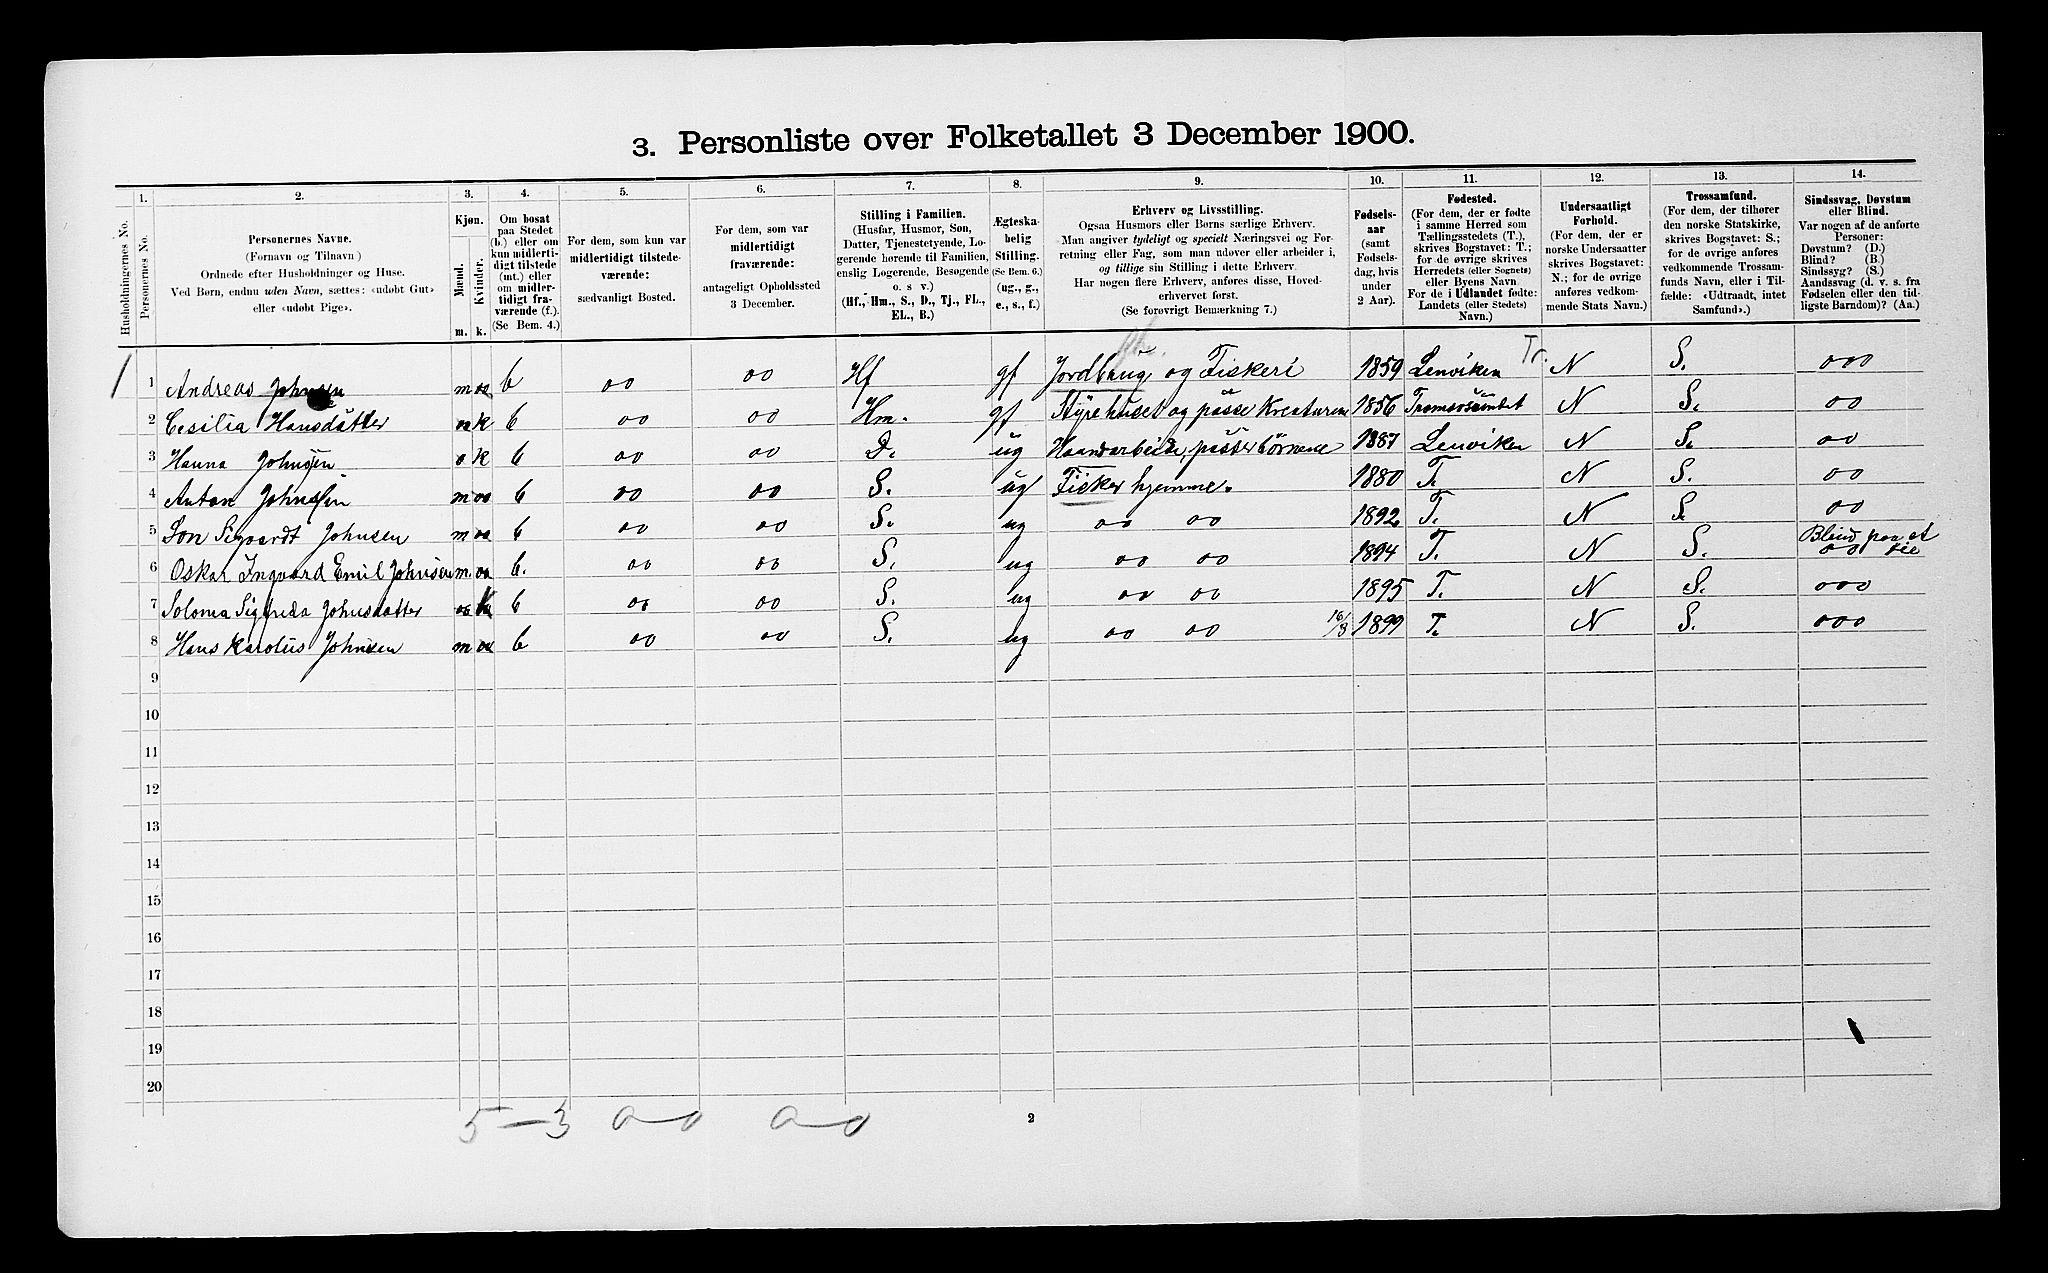 3. Personliste over Folketallet 3 December 1900.
1. 2. 3. 4. 5. 6. 7. 8. 9. 10. 11. 12. 13. 14.
Husholdningernes No.
Personernes No.
Personernes Navne.
(Fornavn og Tilnavn)
Ordnede efter Husholdninger og Huse.
Ved Børn, endnu uden Navn, sættes: «udøbt Gut»
eller «udøbt Pige».
Kjøn.
Mænd.
Kvinder.
m. k.
Om bosat
paa Stedet
(b.) eller om
kun midlerti-
digt tilstede
(mt.) eller
om midler-
tidigt fra-
værende (f.).
(Se Bem. 4.)
For dem, som kun var
midlertidigt tilstede-
værende:
sædvanligt Bosted.
For dem, som var
midlertidigt
fraværende:
antageligt Opholdssted
3 December.
Stilling i Familien.
(Husfar, Husmor, Søn,
Datter, Tjenestetyende, Lo-
gerende hørende til Familien,
enslig Logerende, Besøgende
o. s v.)
(Hf., Hm., S., D., Tj., FL.,
EL., B.)
Ægteska-
belig
Stilling.
(Se Bem. 6.)
(ug., g.,
e., s., f.)
Erhverv og Livsstilling.
Ogsaa Husmors eller Børns særlige Erhverv.
Man angiver tydeligt og specielt Næringsvei og For-
retning eller Fag, som man udøver eller arbeider i,
og tillige sin Stilling i dette Erhverv.
Har nogen flere Erhverv, anføres disse, Hoved-
erhvervet først.
(Se forøvrigt Bemærkning 7.)
Fødsels-
aar
(samt
Fødsels-
dag, hvis
under
2 Aar).
Fødested.
(For dem, der er fødte
i samme Herred som
Tællingsstedets (T.),
skrives Bogstavet: T.;
for de øvrige skrives
Herredets (eller Sognets)
eller Byens Navn
For de i Udlandet fødte:
Landets (eller Stedets)
Navn.)
Undersaatligt
Forhold.
(For dem, der er
norske Undersaatter
skrives Bogstavet:
N.; for de øvrige
anføres vedkom-
mende Stats Navn.)
Trossamfund.
(For dem, der tilhører
den norske Statskirke,
skrives Bogstavet: S.;
for de øvrige anføres
vedkommende Trossam-
funds Navn, eller i Til-
fælde: «Udtraadt, intet
Samfund».)
Sindssvag, Døvstum
eller Blind.
Var nogen af de anførte
Personer:
Døvstum? (D.)
Blind? (B.)
Sindssyg? (S.)
Aandssvag (d. v. s. fra
Fødselen eller den tid-
ligste Barndom)? (Aa.)
1 1 Andreas Johnsen m oo b oo oo Hf gf Jordbrug og Fiskeri 1859 Lenviken Tr. N S. ooo
2 Cesilia Hansdatter oo k b oo oo Hm. gf Styre huset og passe Kreaturene 1856 Tromsøsundet N S. oo
3 Hanna Johnsen o k b oo oo D. ug Haandarbeide, passer börnene 1887 Lenviken N S. oo
4 Anton Johnsen m oo b oo oo S. ug Fisker hjemme. 1880 T. N S. oo
5 Sigvardt Johnsen m oo b oo oo S. ug oo oo 1892. T. N S. oo
6 Oskar Ingvard Emil Johnsen m. oo b. oo oo S. ug oo oo 1894 T. N S. Blind paa et öie oo
7 Soloma Sigfrida Johnsdatter oo k b oo oo S. ug oo oo 1895 T. N S. ooo
8 Hans Karolus Johnsen m oo b oo oo S. ug oo oo 16/8 1899 T. N S. ooo
9
10
11
12
13
14
15
16
17
18
19
20
5 – 3 o-o o-o
2